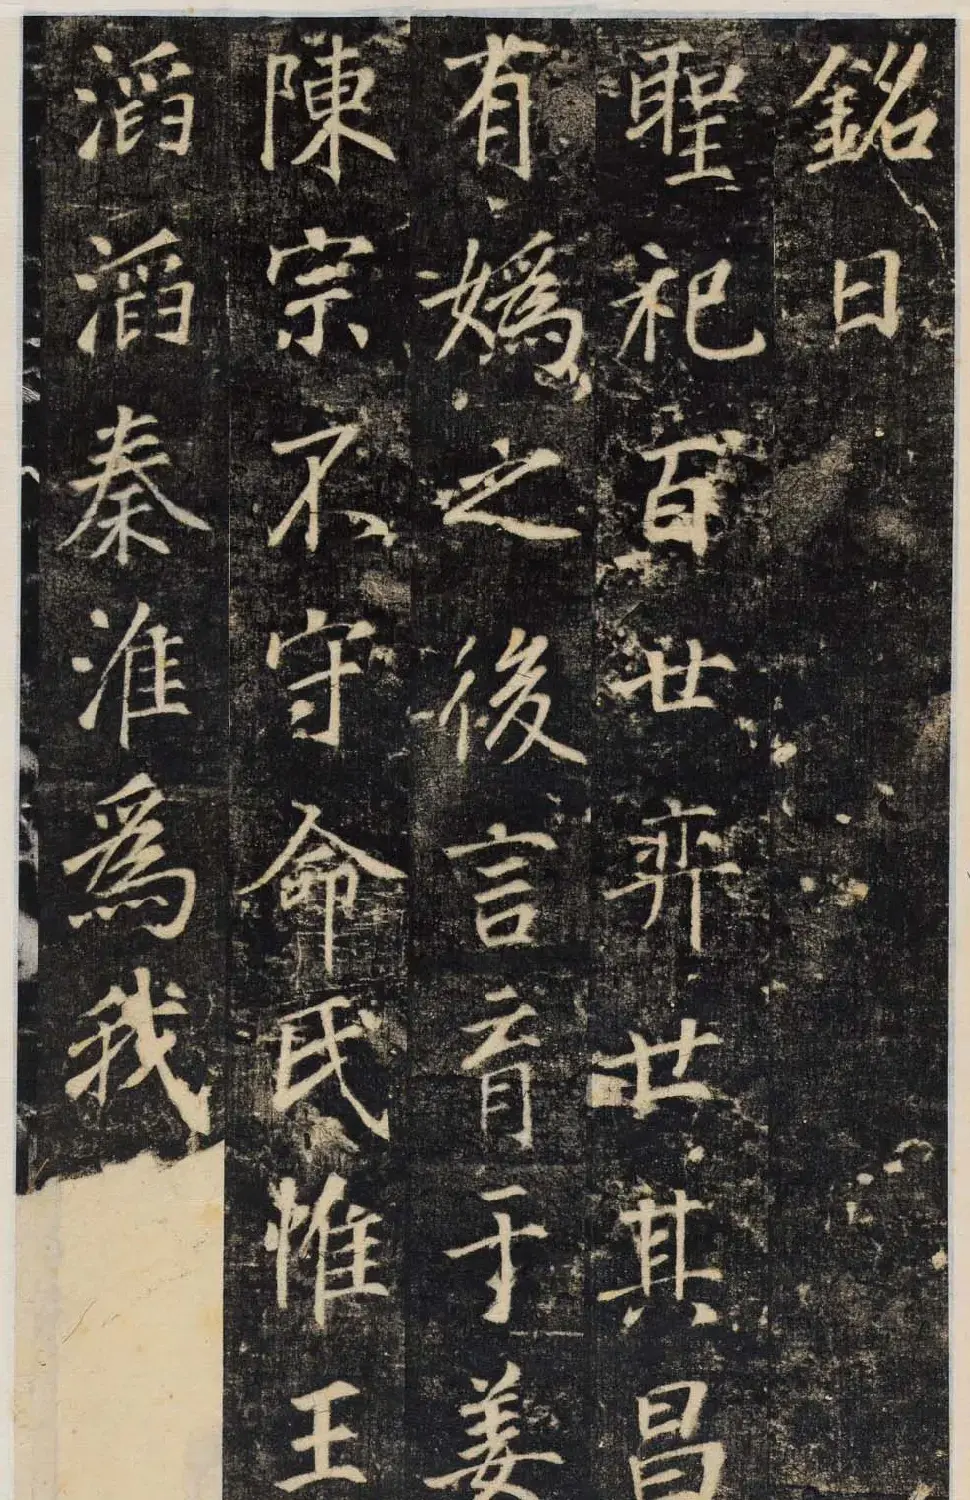 銘曰
聖祀百世弈世其昌
有媯之後言育于姜
陳宗不守命民惟王
滔滔秦淮爲我